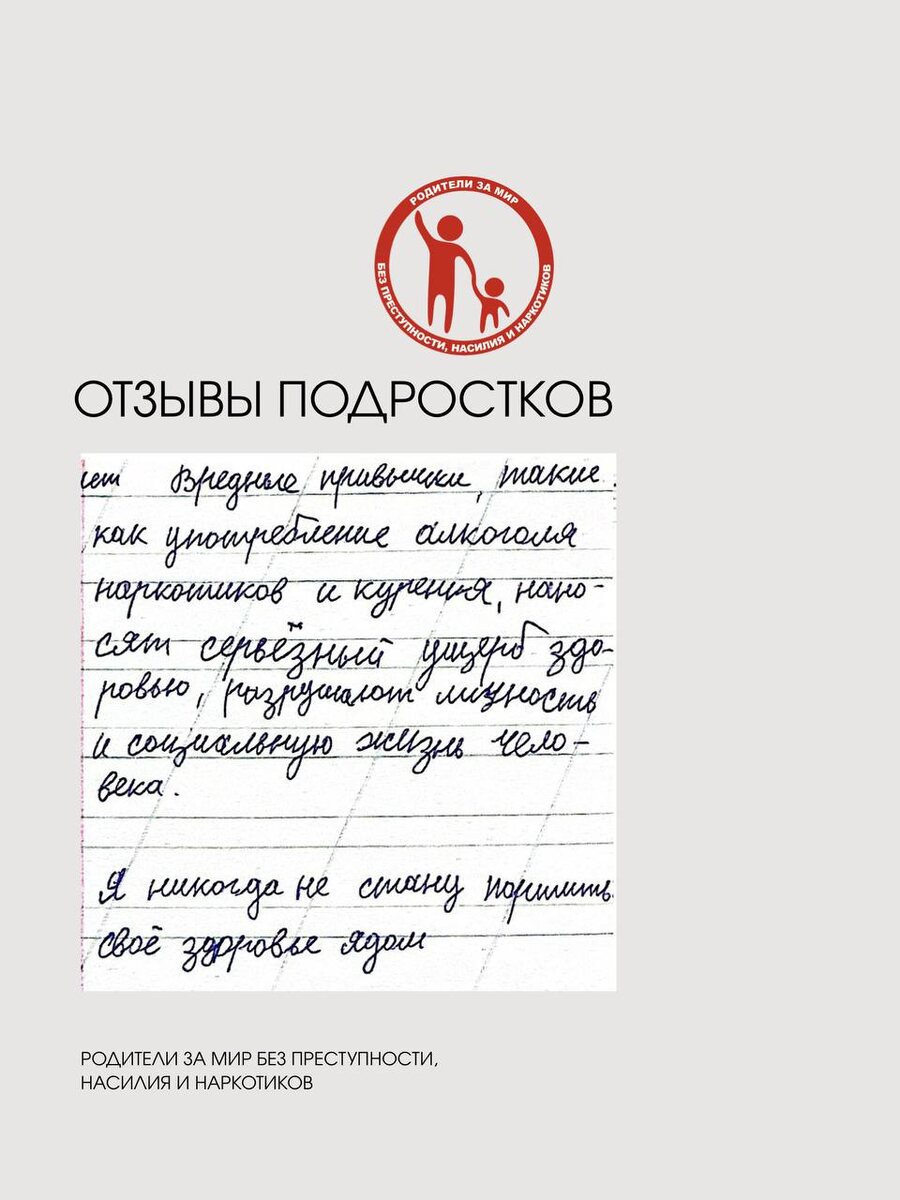 РОДИТЕЛИ ЗА МИР
БЕЗ ПРЕСТУПНОСТИ, НАСИЛИЯ И НАРКОТИКОВ
ОТЗЫВЫ ПОДРОСТКОВ
Вредные привычки, такие
как употребление алкоголя
наркотиков и курения, нано-
сят серьёзный ущерб здо-
ровью, разрушают личность
и социальную жизнь чело-
века.
Я никогда не стану
своё здоровье ядом
РОДИТЕЛИ ЗА МИР БЕЗ ПРЕСТУПНОСТИ,
НАСИЛИЯ И НАРКОТИКОВ